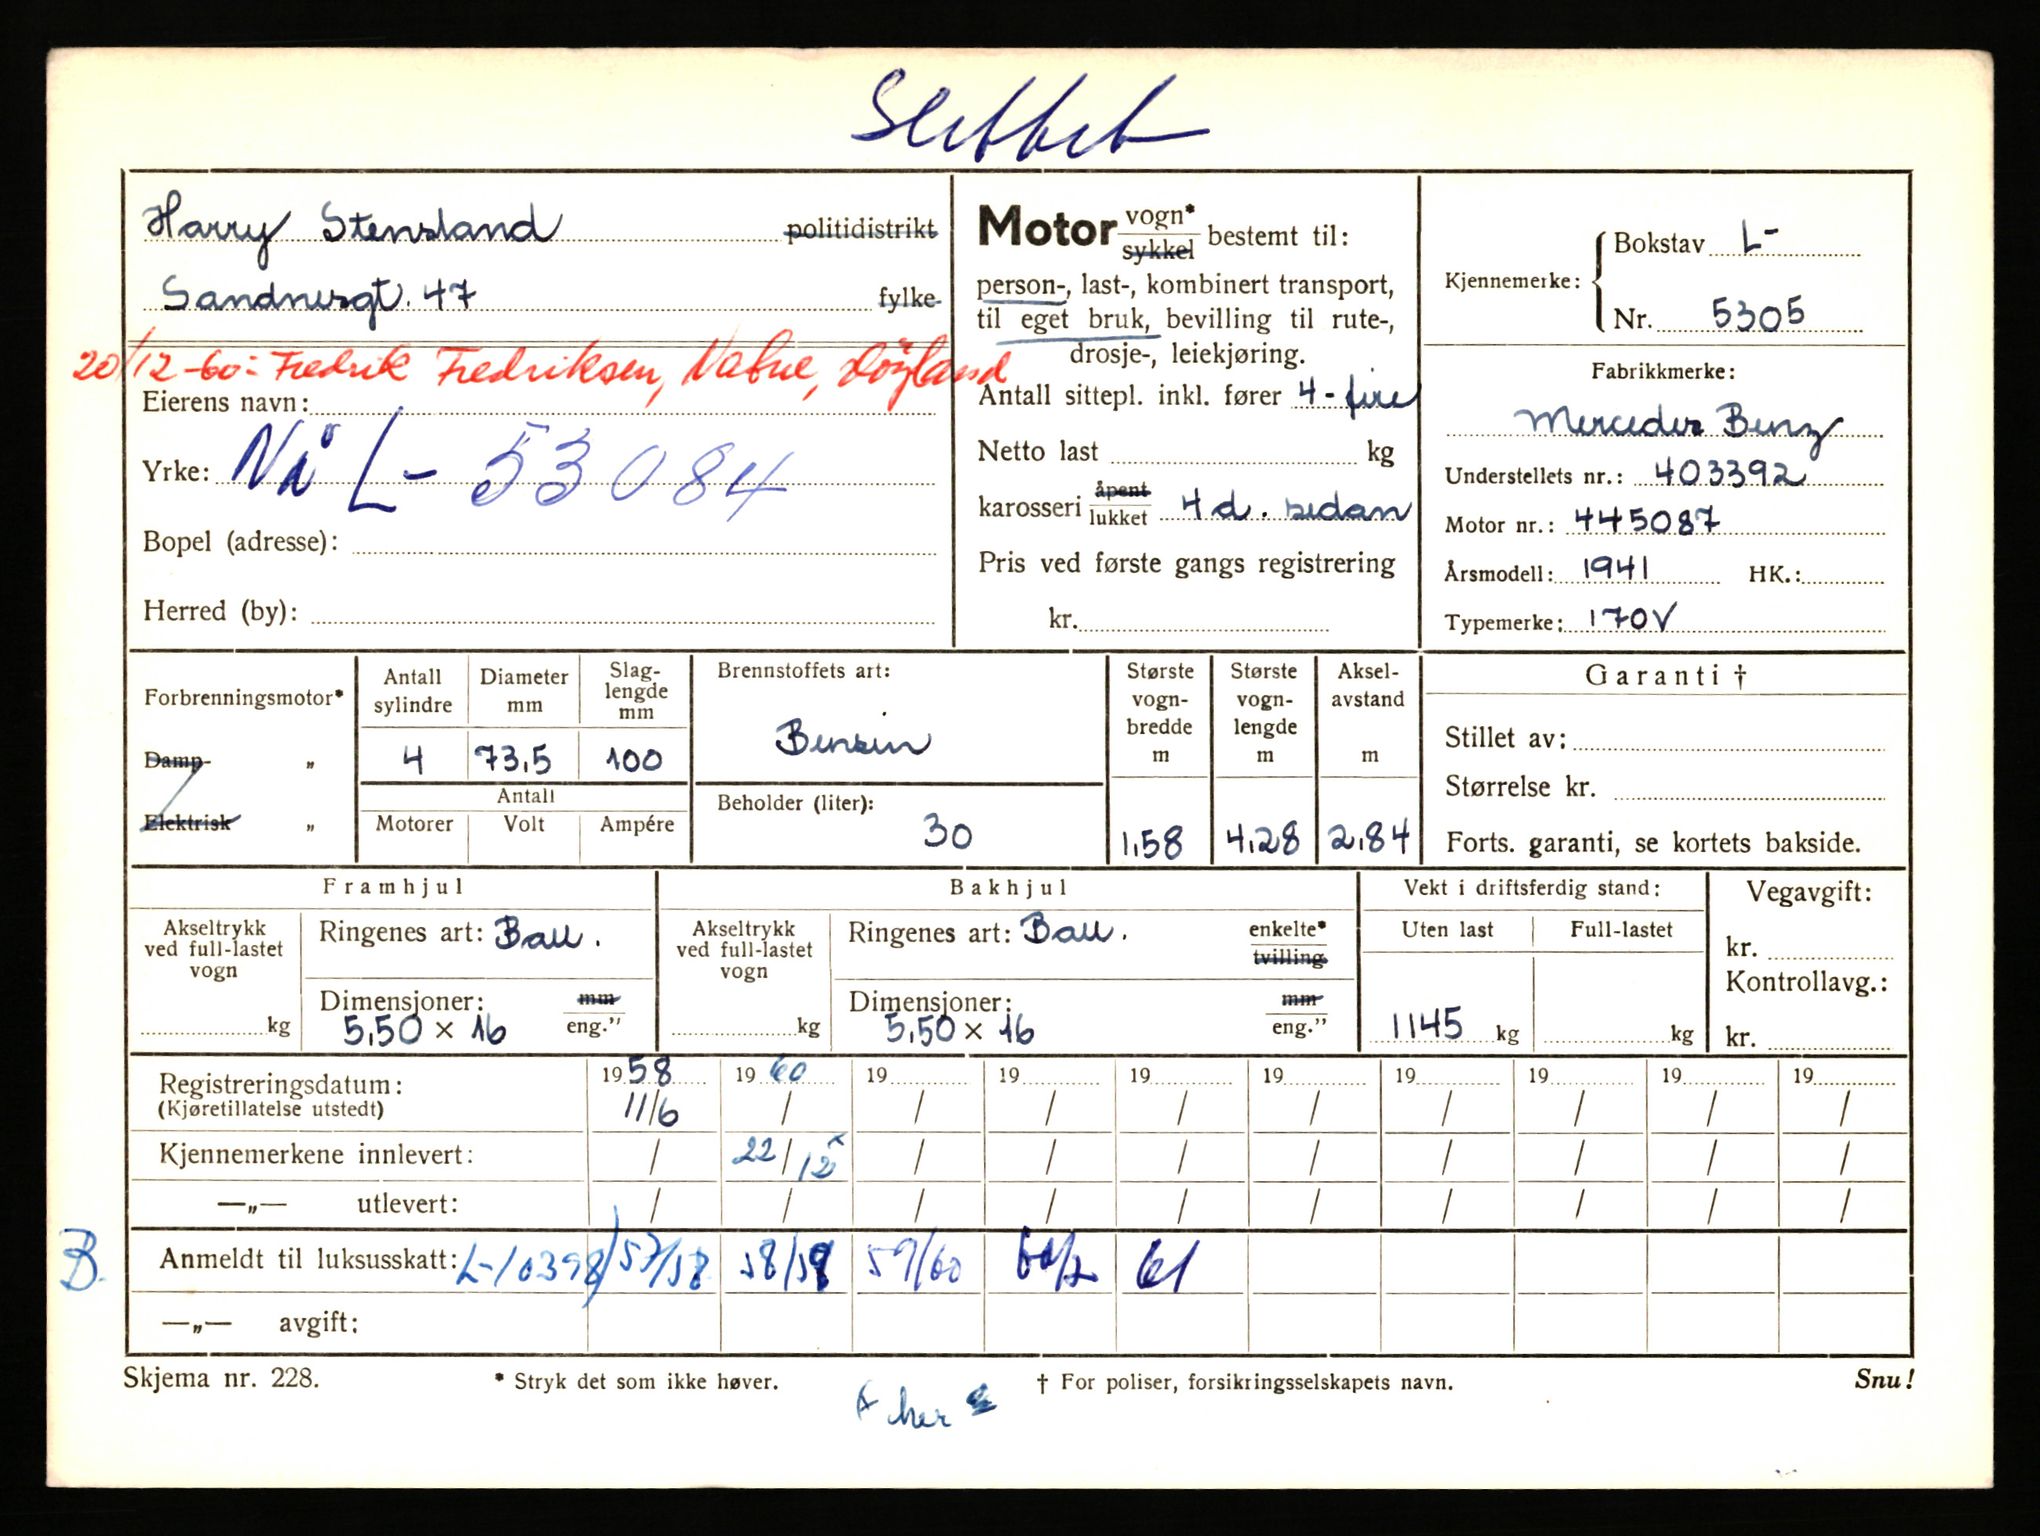 Slettet
Harry Stensland politidistrikt
Sandnesgt. 47 fylke
20/12-60: Fredrik Fredriksen, Nabue, Högland
Eierens navn:
Yrke: Nå L- 53084
Bopel (adresse):
Herred (by):
Motor vogn* sykkel bestemt til:
person-, last-, kombinert transport,
til eget bruk, bevilling til rute-,
drosje-, leiekjøring.
Antall sittepl. inkl. fører 4 - fire
Netto last kg
karosseri åpent lukket 4 d. sedan
Pris ved første gangs registrering
kr.
Kjennemerke: Bokstav L-
Nr. 5305
Fabrikkmerke:
Mercedes Benz
Understellets nr.: 403392
Motor nr.: 445087
Årsmodell: 1941 HK.:
Typemerke: 170V
Forbrenningsmotor*
Damp- „
Elektrisk „
Antall sylindre Diameter mm Slag-lengde mm
4 73,5 100
Antall
Motorer Volt Ampére
Brennstoffets art:
Bensin
Beholder (liter):
30
Største vogn-bredde m Største vogn-lengde m Aksel-avstand m
1,58 4,28 2,84
Garanti †
Stillet av:
Størrelse kr.
Forts. garanti, se kortets bakside.
Framhjul
Akseltrykk ved full-lastet vogn
kg
Ringenes art: Ball.
Dimensjoner: mm
5,50 × 16 eng."
Bakhjul
Akseltrykk ved full-lastet vogn
kg
Ringenes art: Ball. enkelte* tvilling
Dimensjoner: mm
5,50 × 16 eng."
Vekt i driftsferdig stand:
Uten last Full-lastet
1145 kg kg
Vegavgift:
kr.
Kontrollavg.:
kr.
Registreringsdatum: 19 58 19 60 19 19 19 19 19 19 19 19
(Kjøretillatelse utstedt) 11/6 / / / / / / / / /
Kjennemerkene innlevert: / 22/12 x / / / / / / / /
—„— utlevert: / / / / / / / / / /
B. Anmeldt til luksusskatt: L-10398/57/58 58/59 59/60 60/2 61
—„— avgift:
Skjema nr. 228. * Stryk det som ikke høver. † For poliser, forsikringsselskapets navn. Snu!
x her